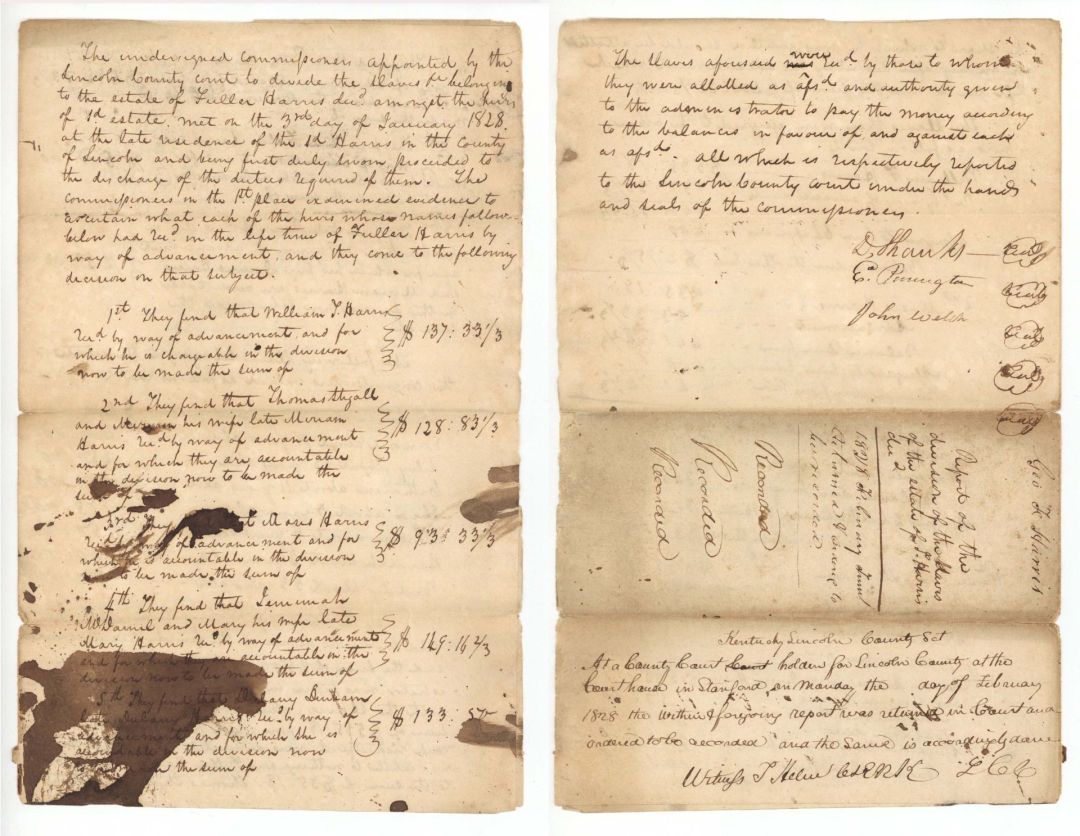 The undersigned Commissioners appointed by the
Lincoln County court to divide the slaves &c belonging
to the estate of Fuller Harris decd. amongst the heirs
of sd estate, met on the 3rd day of January 1828
at the late residence of the sd Harris in the County
of Lincoln and being first duly sworn proceeded to
the discharge of the duties required of them. The
commissioners in the 1st place examined evidence to
ascertain what each of the heirs whose names follow
below had recd in the life time of Fuller Harris by
way of advancement, and they come to the following
decision on that subject.
1st They find that William T. Harris
recd by way of advancement, and for
which he is chargeable in the division
now to be made the sum of
$ 137: 33 1/3
2nd They find that Thomas
and his wife late Miriam
Harris recd by way of advancement
and for which they are accountable
in the division now to be made the
sum of
$ 128: 83 1/3
3rd They Harris
recd by way of advancement and for
which he is accountable in the division
to be made the sum of
33 1/3
4th They find that
McDaniel and Mary his wife late
Mary Harris recd by way of advancement
and for which they are accountable in the
division now to be made the sum of
$ 149: 16 2/3
5th They find that Durham
late Harris recd by way of
advancement and for which she is
accountable in the division now
the sum of
$ 133
The slaves aforesaid were recd by those to whom
they were allotted as afsd and authority given
to the administrator to pay the money according
to the balances in favour of and against each
as afsd. all which is respectively reported
to the Lincoln County court under the hands
and seals of the commissioners.
D. Shanks — Seal
Seal
John Welsh
Seal
Seal
Seal
Geo F Harris
Report of the
division of the slaves
of the estate of F Harris
decd
1828 February
Returned & ordered to
be recorded
Recorded
Recorded
Recorded
Kentucky Lincoln County Sct
At a County Court Court holden for Lincoln County at the
Courthouse in Stanford on Monday the day of February
1828 the within & foregoing report was returned in Court and
ordered to be recorded and the same is accordingly done
Witness T Helm CLERK L C C